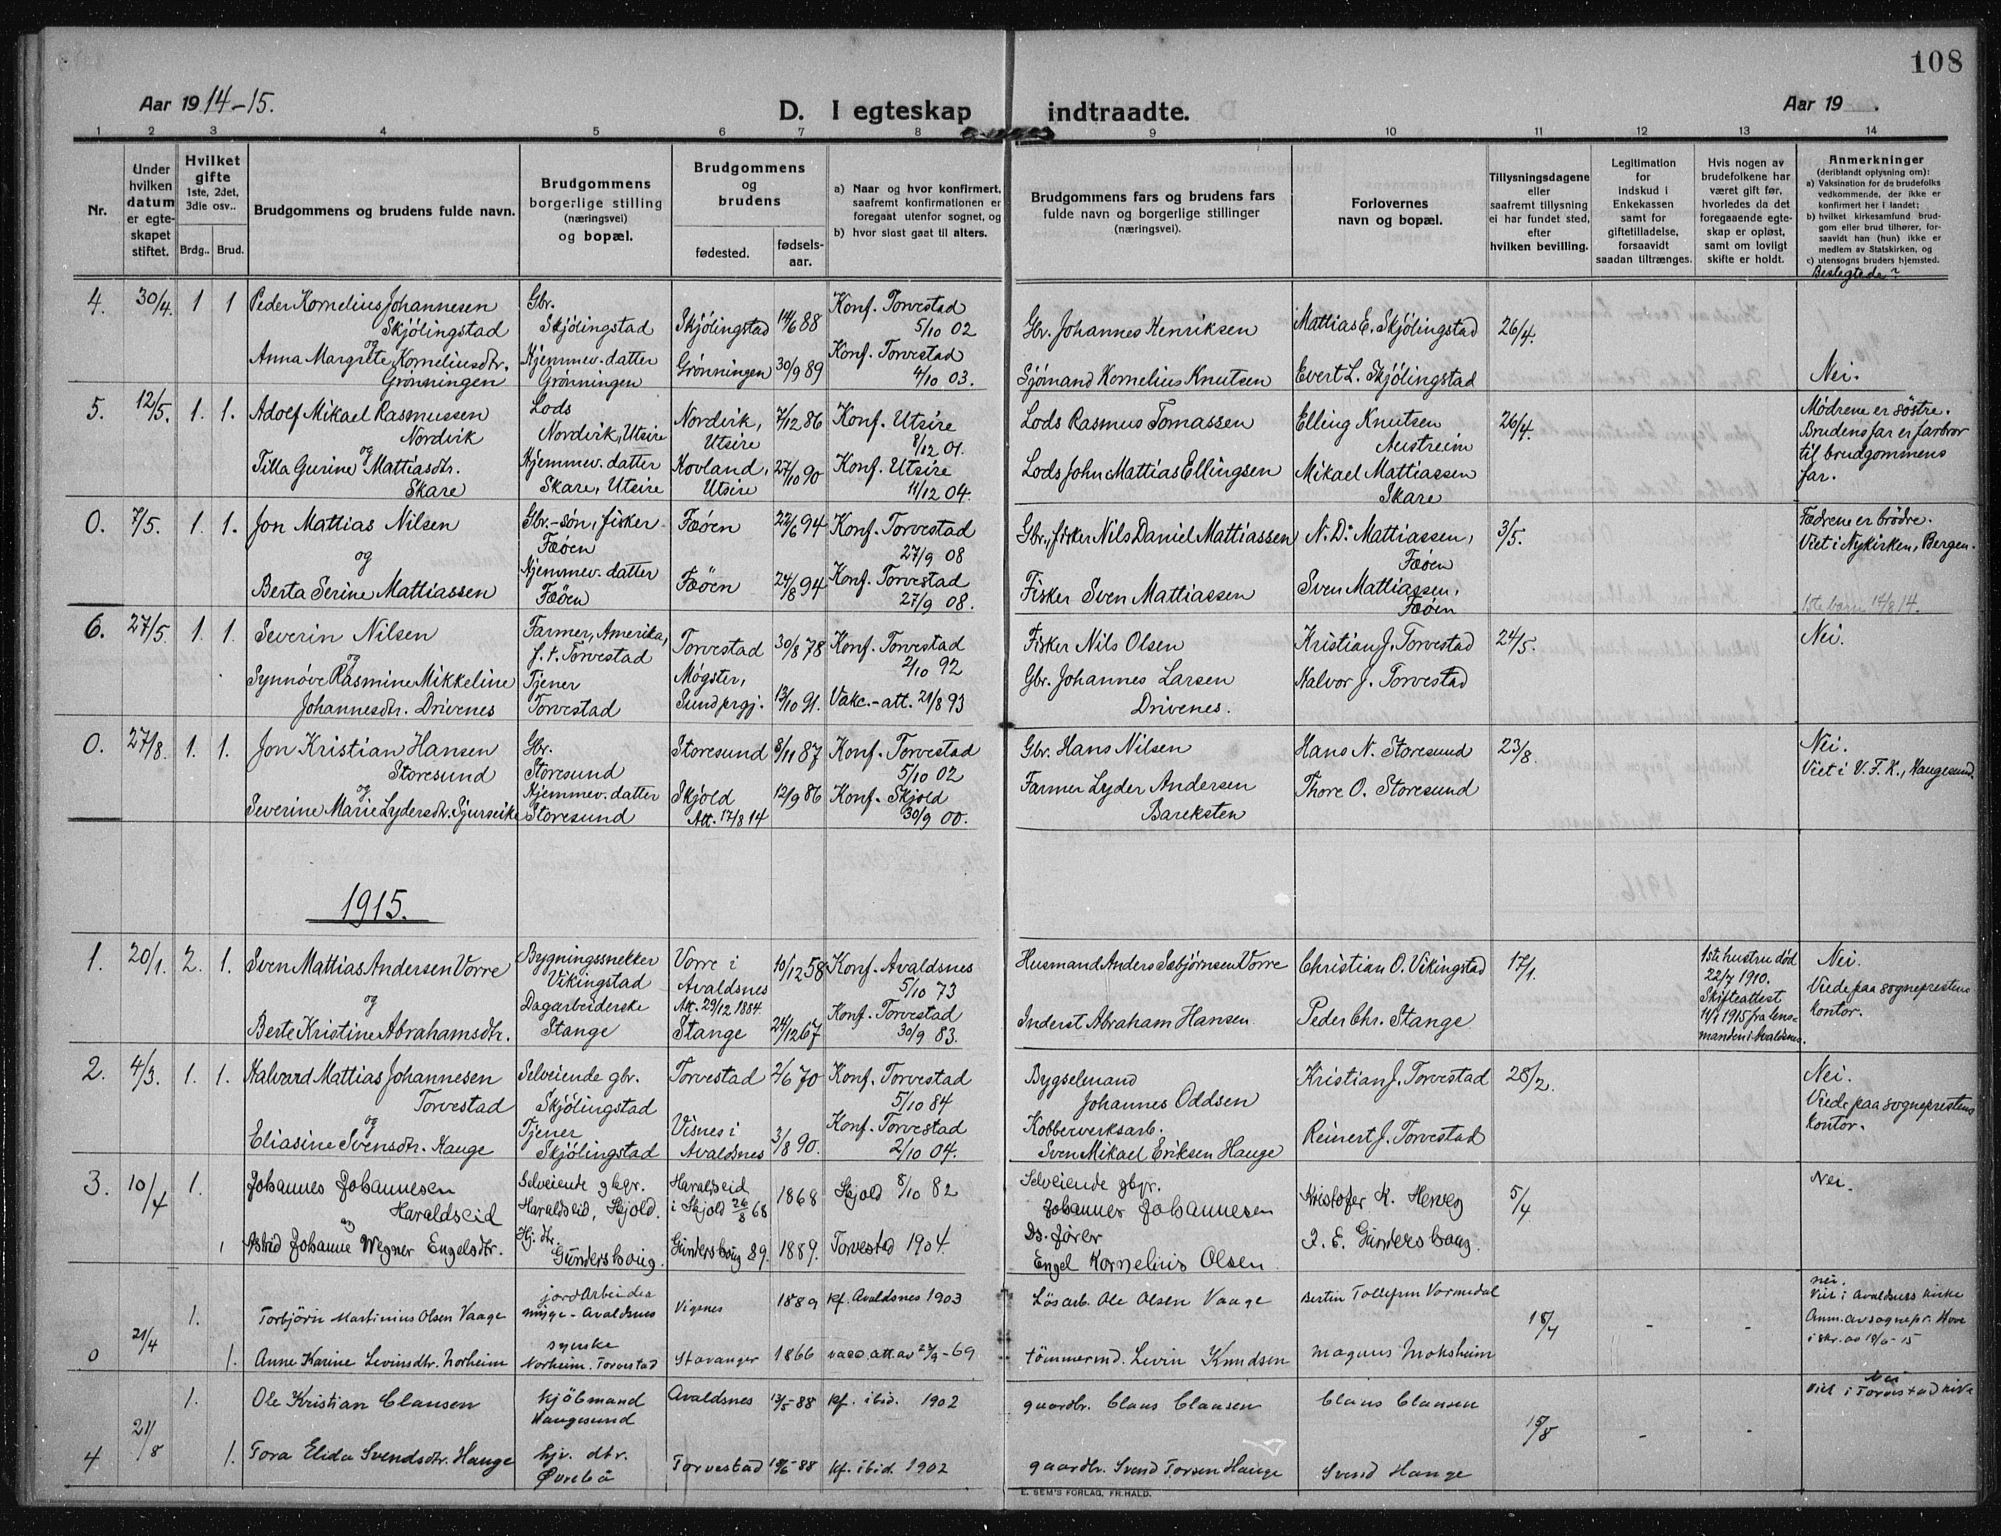 108
Aar 1914-15.
D. I egteskap indtraadte.
Aar 19 .
1 2 3 4 5 6 7 8 9 10 11 12 13 14
Nr.
Under hvilken datum er egteskapet stiftet.
Hvilket gifte 1ste, 2det, 3die osv..
Brdg.. Brud.
Brudgommens og brudens fulde navn.
Brudgommens borgerlige stilling (næringsvei) og bopæl.
Brudgommens og brudens
fødested. fødselsaar.
a) Naar og hvor konfirmert, saafremt konfirmationen er foregaat utenfor sognet, og
b) hvor sidst gaat til alters.
Brudgommens fars og brudens fars fulde navn og borgerlige stillinger (næringsvei).
Forlovernes navn og bopæl.
Tillysningsdagene eller saafremt tillysning ei har fundet sted, efter hvilken bevilling.
Legitimation for indskud i Enkekassen samt for giftetilladelse, forsaavidt saadan tiltrænges.
Hvis nogen av brudefolkene har været gift før, hvorledes da det foregaaende egteskap er opløst, samt om lovligt skifte er holdt.
Anmerkninger (deriblandt oplysning om):
a) Vaksination for de brudefolks vedkommende, der ikke er konfirmert her i landet;
b) hvilket kirkesamfund brudgom eller brud tilhører, forsaavidt han (hun) ikke er medlem av Statskirken, og
c) utensogns bruders hjemsted.
Beslegtede?
4. 30/4. 1 1 Peder Kornelius Johannesen Skjölingstad
Gbr. Skjölingstad
Skjölingstad 14/6 88
Konf. Torvestad 5/10 02
Gbr. Johannes Henriksen
Mattias E. Skjölingstad
26/4.
og
Anna Margitte Korneliusdtr. Grönningen
Hjemmev. datter Grönningen
Grönningen 30/9 89
Konf. Torvestad 4/10 03.
Sjömand Kornelius Knutsen
Evert L. Skjölingstad
Nei.
5. 12/5. 1. 1. Adolf Mikael Rasmussen Nordvik
Lods Nordvik, Utsire
Nordvik, Utsire 7/12 86
Konf. Utsire 8/12 01.
Lods Rasmus Tomassen
Elling Knutsen Austreim
26/4.
Mödrene er söstre. Brudens far er farbror til brudgommens far.
og
Tilla Gurine Mattiasdtr. Skare
Hjemmev. datter Skare, Utsire
Hovland, Utsire 27/10 90
Konf. Utsire 11/12 04.
Lods John Mattias Ellingsen
Mikael Mattiassen Skare
0. 7/5. 1. 1. Jon Mattias Nilsen
Gbr.-sön, fisker Fæöen
Fæöen 22/6 94
Konf. Torvestad 27/9 08
Gbr., fisker Nils Daniel Mattiassen
N. D. Mattiassen, Fæöen
3/5.
Fædrene er brödre. Viet i Nykirken, Bergen.
og
Berta Serine Mattiassen
Hjemmev. datter Fæöen
Fæöen 24/8 94
Konf. Torvestad 27/9 08.
Fisker Sven Mattiassen
Sven Mattiassen, Fæöen
1ste barn 14/8 14.
6. 27/5. 1. 1. Severin Nilsen
Farmer, Amerika, f. t. Torvestad
Torvestad 30/8 78
Konf. Torvestad 2/10 92
Fisker Nils Olsen
Kristian J. Torvestad
24/5.
Nei.
og
Synnöve Rasmine Mikkeline Johannesdtr. Drivenes
Tjener Torvestad
Mögster, Sund prgj. 13/10 91.
Vakc.-att. 21/8 93
Gbr. Johannes Larsen Drivenes.
Halvor J. Torvestad
0. 27/8. 1. 1. Jon Kristian Hansen Storesund
Gbr. Storesund
Storesund 8/11 87
Konf. Torvestad 5/10 02
Gbr. Hans Nilsen
Hans N. Storesund
23/8.
Nei. Viet i V. F. K., Haugesund.
og
Severine Marie Lydersdtr. Gjurseike
Hjemmev. datter Storesund
Skjold Att. 17/8 14 12/9 86
Konf. Skjold 30/9 00.
Farmer Lyder Andersen Bareksten
Thore O. Storesund
1915.
1. 20/1. 2. 1. Sven Mattias Andersen Vorre
Bygningssnekker Vikingstad
Vorre i Avaldsnes Att. 29/12 1884 10/12 58
Konf. Avaldsnes 5/10 73
Husmand Anders Esbjörnsen Vorre
Christian O. Vikingstad
17/1.
1ste hustru död 22/7 1910. Skifteattest 11/1 1915 fra lensmanden i Avaldsnes.
Nei. Viede paa sogneprestens kontor.
og
Berte Kristine Abrahamsdtr.
Dagarbeiderske Stange
Stange 24/12 67
Konf. Torvestad 30/9 83.
Inderst Abraham Hansen
Peder Chr. Stange
2. 4/3. 1. 1. Halvard Mattias Johannesen Torvestad
Selveiende gbr. Skjölingstad
Torvestad 2/6 70
Konf. Torvestad 5/10 84
Bygselmand Johannes Oddsen
Kristian J. Torvestad
28/2.
Nei. Viede paa sogneprestens kontor.
og
Eliasine Svensdtr. Hauge
Tjener Skjölingstad
Visnes i Avaldsnes 3/8 90.
Konf. Torvestad 2/10 04.
Kobberverksarb. Sven Mikael Eriksen Hauge
Reinert J. Torvestad
3. 10/4 1. Johannes Johannesen Haraldseid
Selveiende gbgr. Haraldseid, Skjold.
Haraldseid i Skjold 26/8 68 1868
Skjold 8/10 82
Selveiende gbgr. Johannes Johannesen
Kristofer K. Herveg
5/4
Nei.
og
1 Astrid Johanne Wegner Engelsdtr.
Hj. dtr. Gundershaug.
Gundershaug 89. 1889.
Torvestad 1904.
Engel Kornelius Olsen.
J. E. Gundershaug.
0 21/4 1. Torbjörn Martinius Olsen Vaage
jordarbeider myge-Avaldsnes
Vignes 1889
kf. Avaldsnes 1903
Lösarb. Ole Olsen Vaage
Bertin Tollefsen Vormedal
18/4 - -
nei. Viet i Avaldsnes kirke Anm. av sognepr. Hove
1. Anne Karine Levinsdtr. Norheim
syerske Norheim. Torvestad
Stavanger 1866
vacc. att. av 27/9-69
tömmermd. Levin Knudsen
Magnus Moksheim
4 21/8 1. Ole Kristian Clausen
kjöbmand Haugesund
Avaldsnes 13/5-88
kf. ibid. 1902
gaardbr. Claus Clausen
Claus Clausen
15/8 - -
Nei Viet i Torvestad kirke
1. Tora Elida Svendsdtr. Hauge
hjv. dtr. Övrebö
Torvestad 19/6-88
kf. ibid. 1902
gaardbr. Svend Torsen Hauge
Svend Hauge
E. SEM'S FORLAG, FR.HALD.